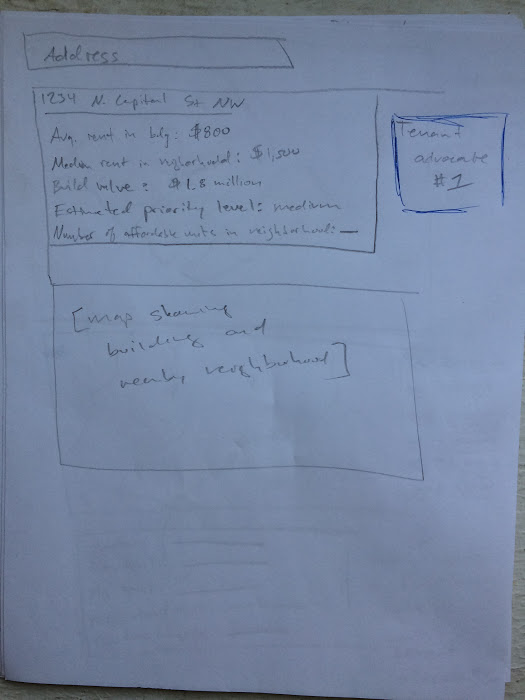 Address
1234 N. Capital St NW
Avg. rent in bldg: $800
Median rent in neighborhood: $1,500
Build value: $1.8 million
Estimated priority level: medium
Number of affordable units in neighborhood: —
Tenant
advocate
#1
[map showing
building and
nearby neighborhood]